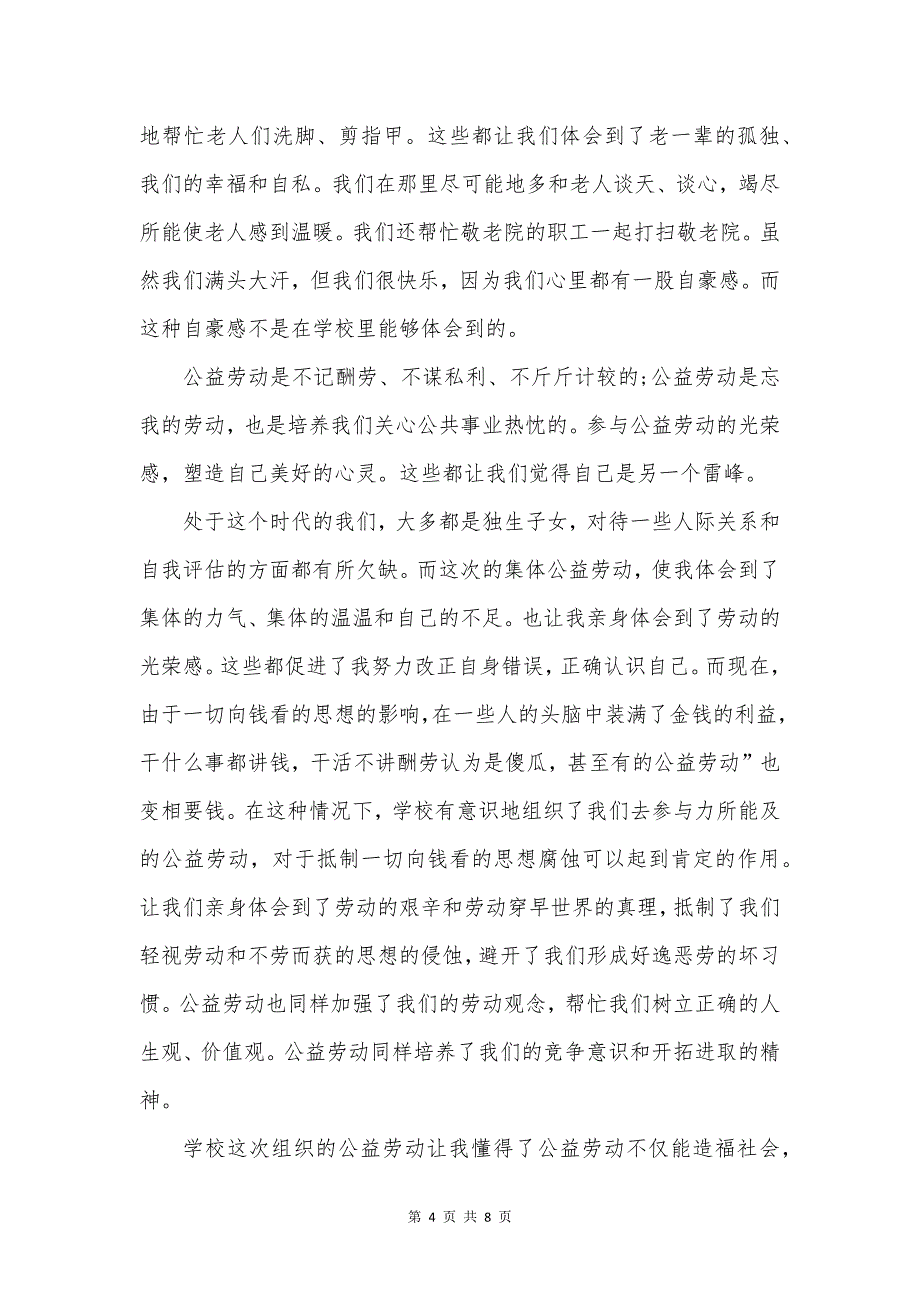 地帮忙老人们洗脚、剪指甲。这些都让我们体会到了老一辈的孤独、
我们的幸福和自私。我们在那里尽可能地多和老人谈天、谈心，竭尽
所能使老人感到温暖。我们还帮忙敬老院的职工一起打扫敬老院。虽
然我们满头大汗，但我们很快乐，因为我们心里都有一股自豪感。而
这种自豪感不是在学校里能够体会到的。
公益劳动是不记酬劳、不谋私利、不斤斤计较的;公益劳动是忘
我的劳动，也是培养我们关心公共事业热忱的。参与公益劳动的光荣
感，塑造自己美好的心灵。这些都让我们觉得自己是另一个雷峰。
处于这个时代的我们，大多都是独生子女，对待一些人际关系和
自我评估的方面都有所欠缺。而这次的集体公益劳动，使我体会到了
集体的力气、集体的温温和自己的不足。也让我亲身体会到了劳动的
光荣感。这些都促进了我努力改正自身错误，正确认识自己。而现在，
由于一切向钱看的思想的影响，在一些人的头脑中装满了金钱的利益，
干什么事都讲钱，干活不讲酬劳认为是傻瓜，甚至有的公益劳动”也
变相要钱。在这种情况下，学校有意识地组织了我们去参与力所能及
的公益劳动，对于抵制一切向钱看的思想腐蚀可以起到肯定的作用。
让我们亲身体会到了劳动的艰辛和劳动穿早世界的真理，抵制了我们
轻视劳动和不劳而获的思想的侵蚀，避开了我们形成好逸恶劳的坏习
惯。公益劳动也同样加强了我们的劳动观念，帮忙我们树立正确的人
生观、价值观。公益劳动同样培养了我们的竞争意识和开拓进取的精
神。
学校这次组织的公益劳动让我懂得了公益劳动不仅能造福社会，
第 4 页 共 8 页